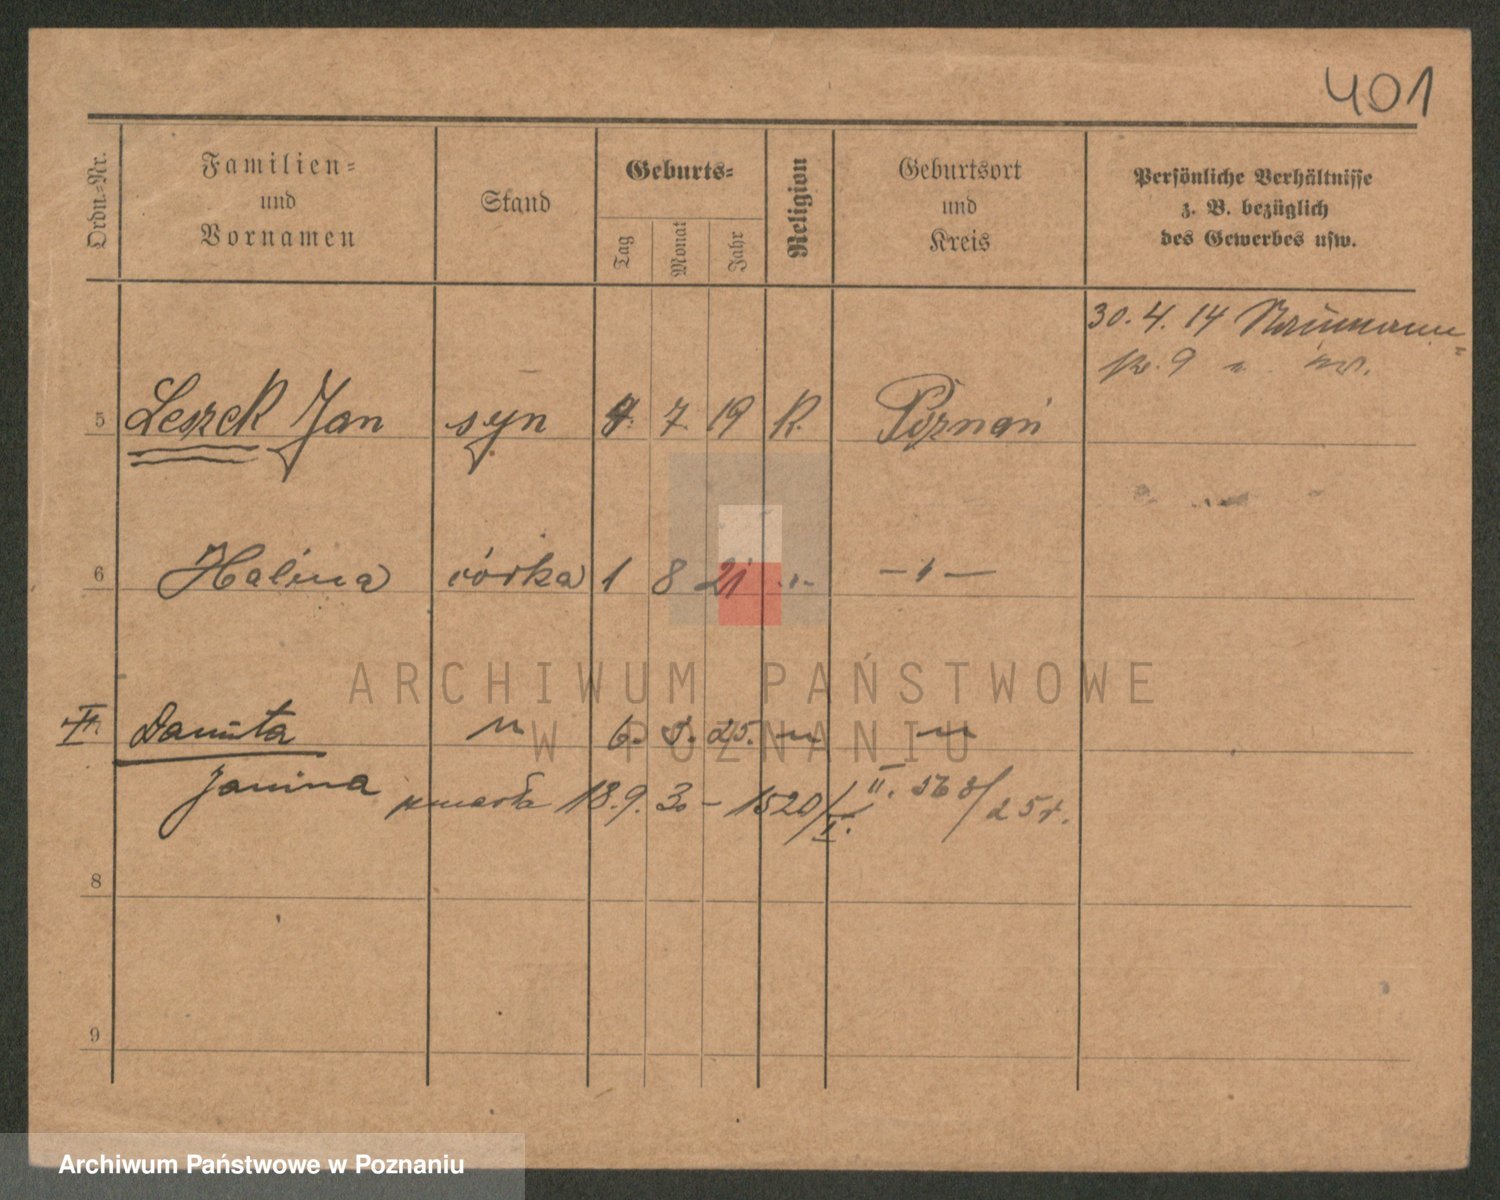 401
Ordn.-Nr.
Familien-
und
Vornamen
Stand
Geburts-
Tag
Monat
Jahr
Religion
Geburtsort
und
Kreis
Persönliche Verhältnisse
z. B. bezüglich
des Gewerbes usw.
30. 4. 14 Naumann-
5 Leszek Jan syn 7. 19 R. Poznań
6 Halina córka 1 8 21 -"- -"-
ARCHIWUM PAŃSTWOWE
W POZNANIU
Danuta " 6. 5. 25. -"- -"-
Janina zmarła 18. 9. 30 - 1520/I. II. 568/25r.
8
9
Archiwum Państwowe w Poznaniu